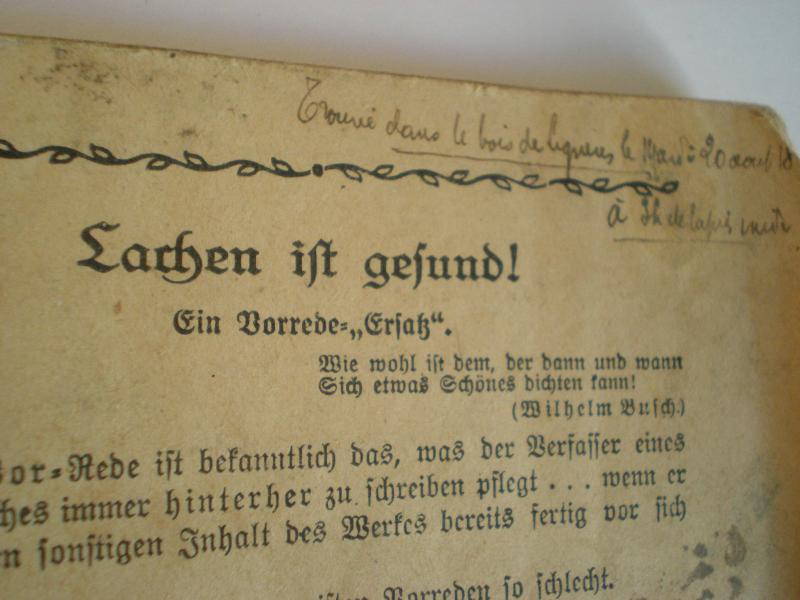 Trouvé dans le bois de lignières le Mardi 20 aout 18
à 3h de l'après midi
Lachen ist gesund!
Ein Vorrede-„Ersatz“.
Wie wohl ist dem, der dann und wann
Sich etwas Schönes dichten kann!
(Wilhelm Busch.)
or-Rede ist bekanntlich das, was der Verfasser eines
hes immer hinterher zu schreiben pflegt . . . wenn er
n sonstigen Inhalt des Werkes bereits fertig vor sich
Vorreden so schlecht.